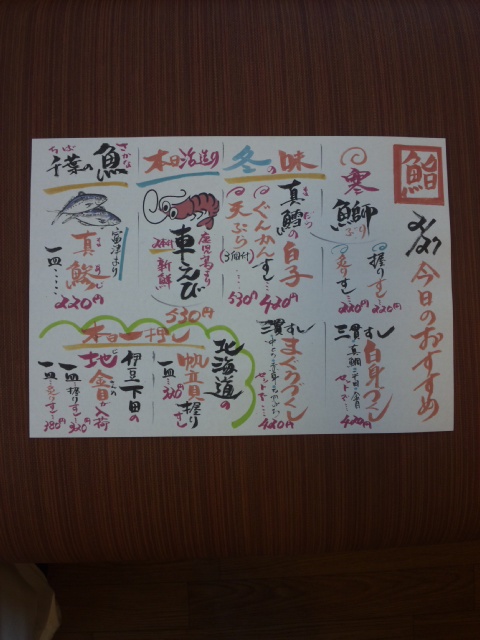 鮨
今日のおすすめ
寒鰤
ぶり
握りすし
220円
炙りすし
220円
三貫すし
白身づくし
真鯛
セットで
420円
冬の味
真鱈の白子
まだら
ぐんかんすし
420円
天ぷら
530円
三貫すし
まぐろづくし
420円
本日漁港より
鹿児島より
車えび
新鮮
530円
千葉の魚
ちば
さかな
富津より
真鯵
一皿
220円
本日一押し
北海道の
帆立貝握りすし
一皿
320円
伊豆下田の
地金目が入荷
一皿握りすし
320円
一皿炙りすし
380円